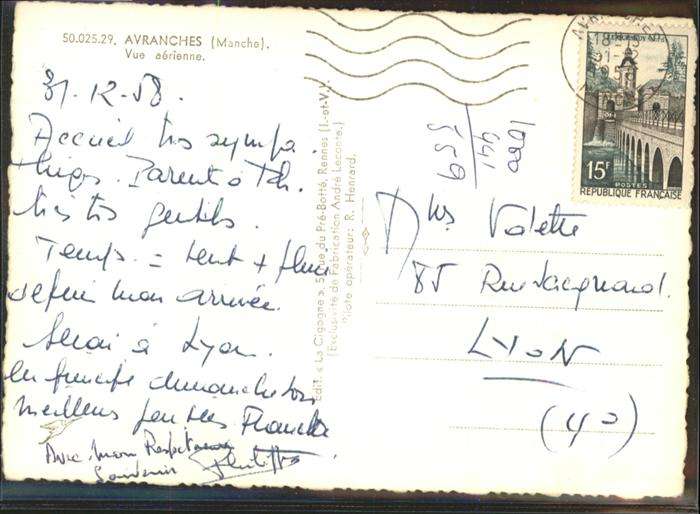 50.025.29. AVRANCHES (Manche).
Vue aérienne.
31-12-58.
Accueil très sympa
Parents
très très gentils.
Temps = vent + pluie
depuis mon arrivée.
Serai à Lyon
en principe dimanche
meilleurs
Avec mon Respectueux
Souvenir
Edit. « La Cigogne », 5, rue du Pré-Botté, Rennes (I.-et-V.).
(Exclusivité de Fabrication André Leconte.)
Pilote opérateur : R. Henrard.
1000
441
559
15F
POSTES
REPUBLIQUE FRANÇAISE
Valette
85 Rue Jacquard.
LYON
(4°)